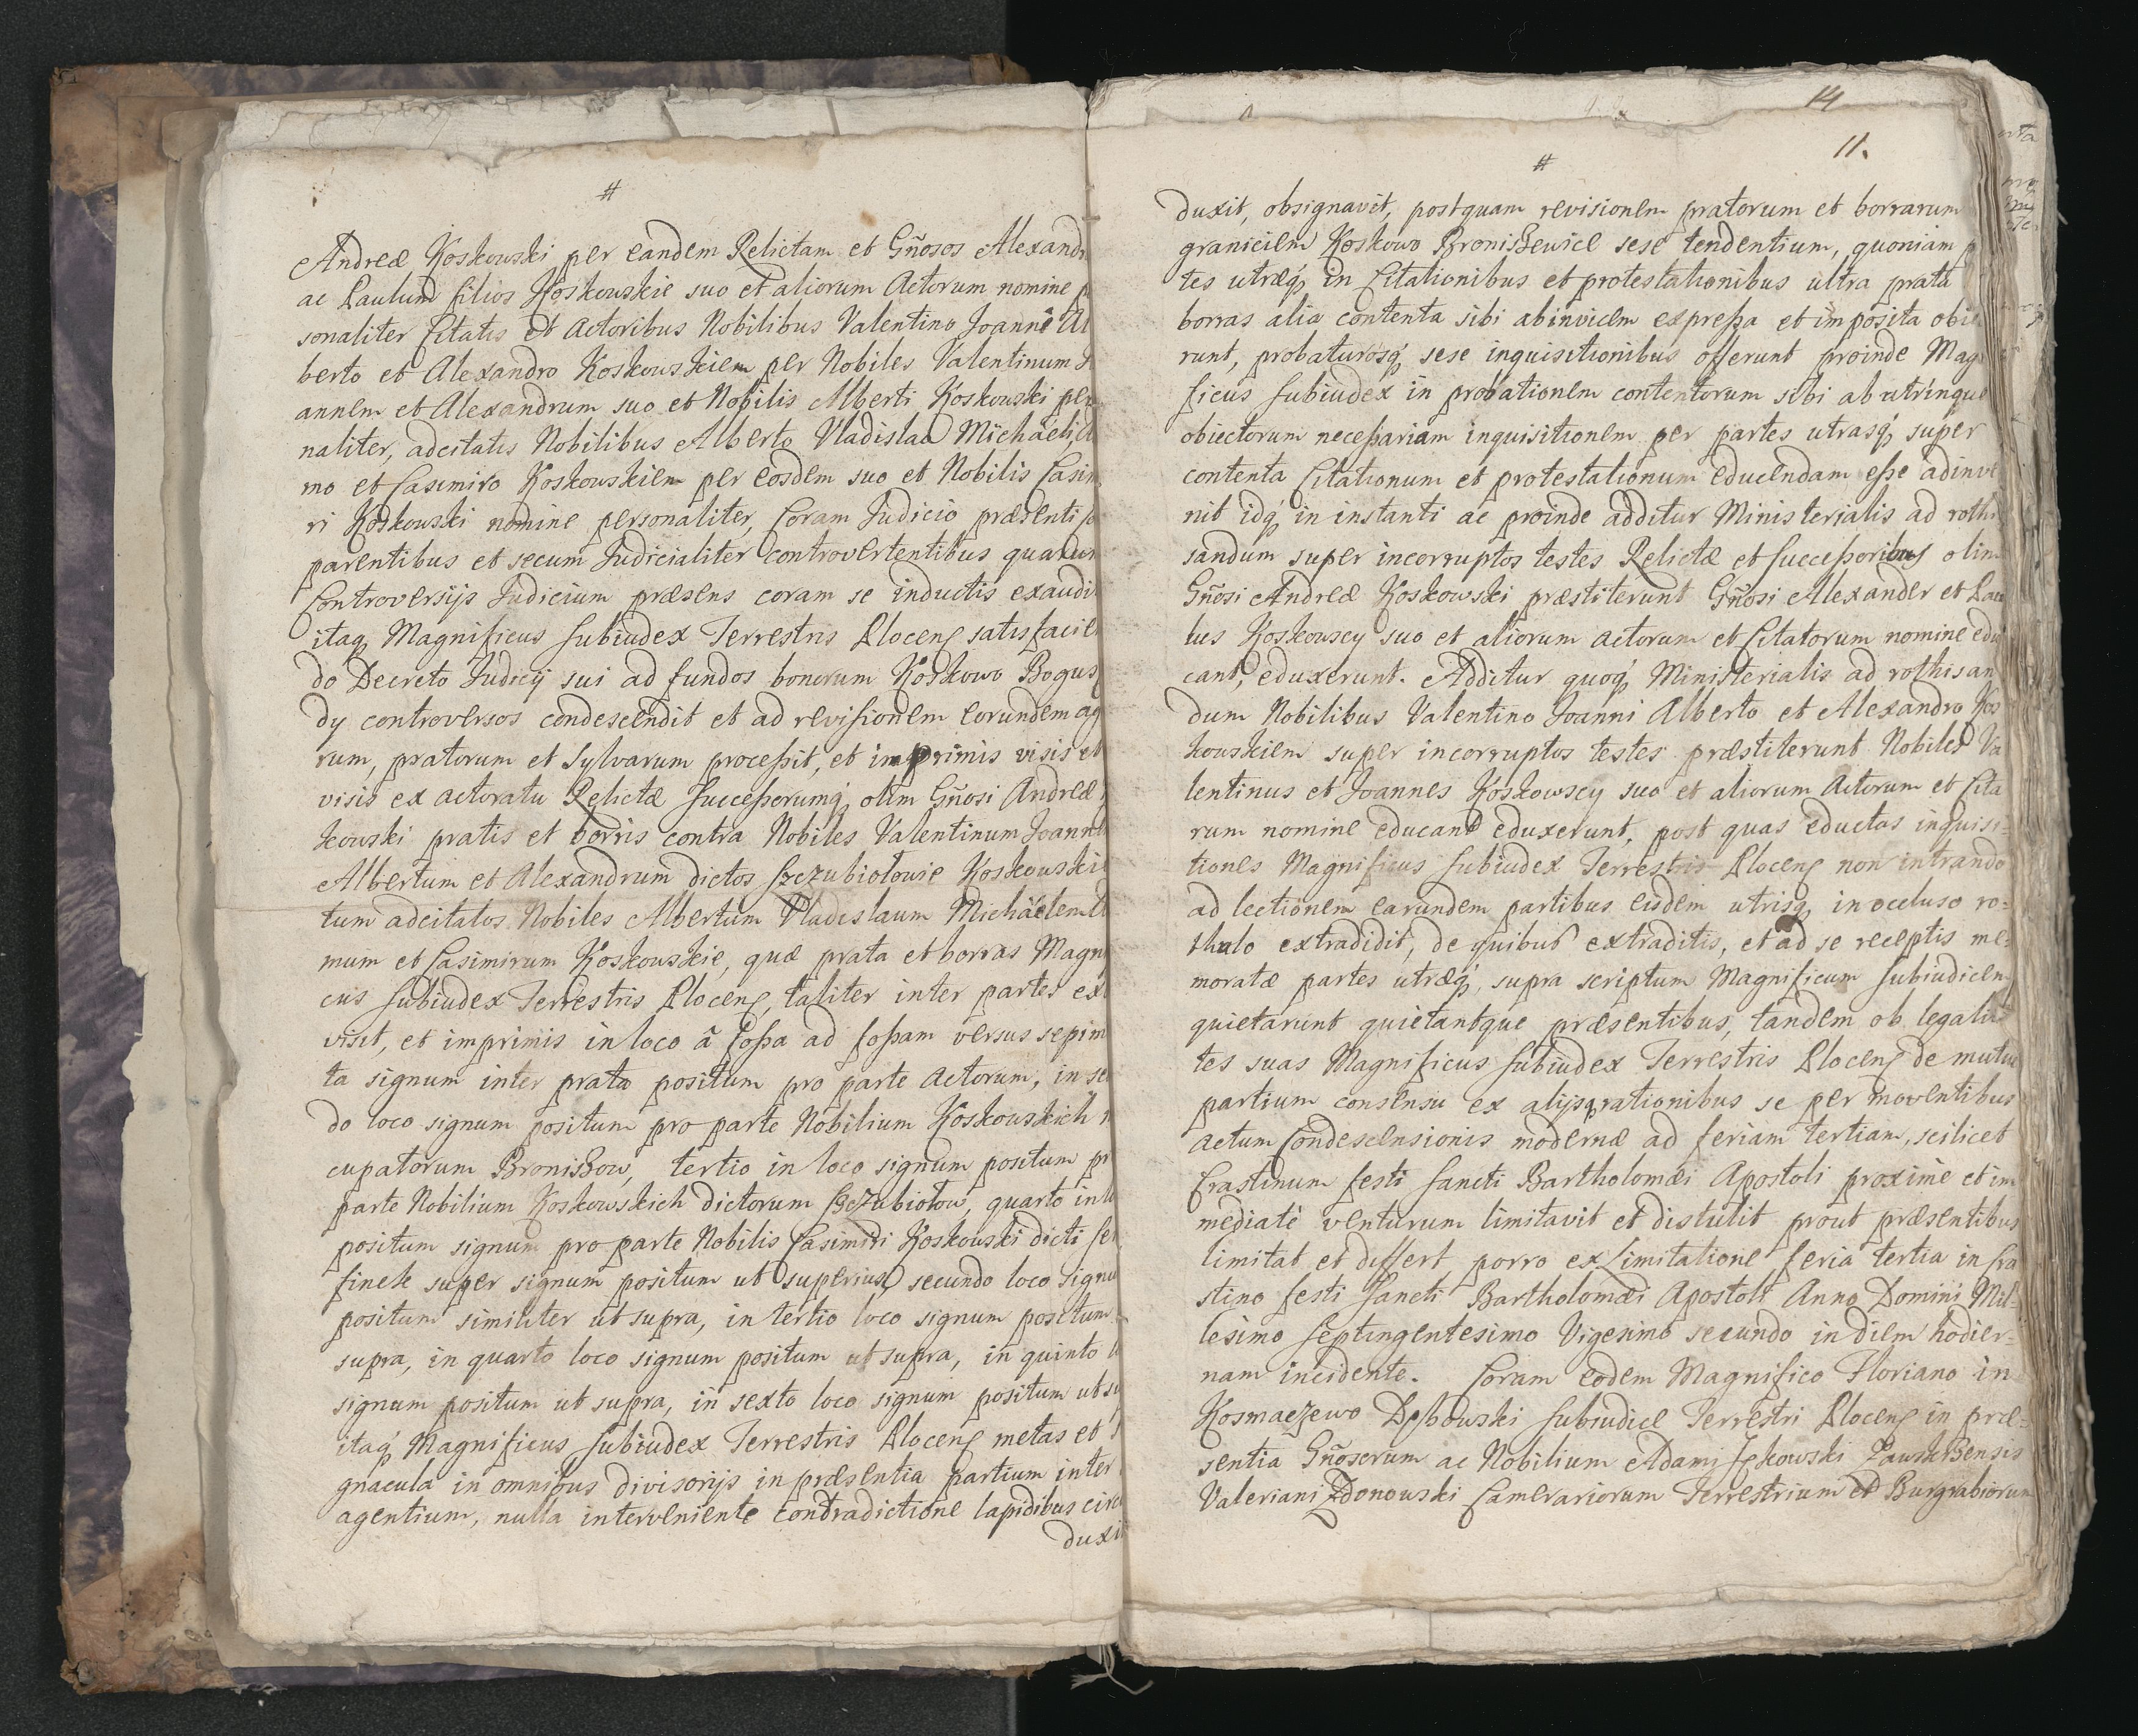 #
Andreæ Koskowski per eandem Relictam et Gñosos Alexandr
ac Paulum filios Koskowskie suo et aliorum Actorum nomine p
sonaliter Citatis et Actoribus Nobilibus Valentino Joanni Al
berto et Alexandro Koskowskiem per Nobiles Valentinum
annem et Alexandrum suo et Nobilis Alberti Koskowski per
naliter, adcitatis Nobilibus Alberto Vladislao Michaeli,
mo et Casimiro Koskowskiem per eosdem suo et Nobilis Casim
ri Koskowski nomine personaliter, Coram Judicio præsenti co
parentibus et secum Judicialiter controvertentibus quarum
Controversijs Judicium præsens coram se inductis exaudi
itaq Magnificus Subiudex Terrestris Plocens satisfacien
do Decreto Judicij sui ad fundos bonorum Koskowo Bogus
dy controversos condescendit et ad revisionem eorundem ag
rum, pratorum et Sylvarum proceßit, et imprimis visis et
visis ex actoratu Relictæ Succeßorumq olim Gñosi Andreæ
kowski pratis et borris contra Nobiles Valentinum Joann
Albertum et Alexandrum dictos Szczubiotowie Koskowski
tum adcitatos Nobiles Albertum Vladislaum Michäelem
mum et Casimirum Koskowskie, quæ prata et borras Magni
cus Subiudex Terrestris Plocens, taliter inter partes ex
visit, et imprimis in loco â foßa ad foßam versus sepim
ta signum inter prata positum pro parte Actorum, in se
do loco signum positum pro parte Nobilium Koskowskich
cupatorum Bronißow, tertio in loco signum positum pr
parte Nobilium Koskowskich dictorum Szczubiotow, quarto in lo
positum signum pro parte Nobilis Casimiri Koskowski dicti
finek super signum positum ut superius, secundo loco signu
positum similiter ut supra, in tertio loco signum positum
supra, in quarto loco signum positum ut supra, in quinto lo
signum positum ut supra, in sexto loco signum positum ut su
itaq Magnificus Subiudex Terrestris Plocens metas et
gnacula in omnibus divisorijs in præsentia partium inter
agentium, nulla interveniente contradictione lapidibus circ
duxi
14
11.
#
duxit, obsignavit, postquam revisionem pratorum et borrarum
graniciem Koskowo Bronißewice sese tendentium, quoniam p
tes utræq in Citationibus et protestationibus ultra prata
borras alia contenta sibi abinvicem expreßa et imposita obie
runt, probaturosq sese inquisitionibus offerunt proinde Mag
ficus Subiudex in probationem contentorum sibi ab utrinque
obiectorum neceßariam inquisitionem per partes utrasq super
contenta Citationum et protestationum educendam eße adinve
nit idq in instanti ac proinde additur Ministerialis ad rothi
sandum super incorruptos testes Relictæ et Succeßoribus olim
Gñosi Andreæ Koskowski præstiterunt Gñosi Alexander et Pau
lus Koskowscy suo et aliorum actorum et Citatorum nomine edu
cant, eduxerunt. Additur quoq Ministerialis ad rothisan
dum Nobilibus Valentino Joanni Alberto et Alexandro Kos
kowskiem super incorruptos testes præstiterunt Nobiles Va
lentinus et Joannes Koskowscy suo et aliorum Actorum et Cita
rum nomine educant eduxerunt, post quas eductas inquisi=
tiones Magnificus Subiudex Terrestris Plocens non intrando
ad lectionem earundem partibus eisdem utrisq in occluso ro=
thulo extradidit, de quibus extraditis, et ad se receptis me=
moratæ partes utræq, supra scriptum Magnificum Subiudicem
quietarunt quietantque præsentibus, tandem ob legalita
tes suas Magnificus Subiudex Terrestris Plocens de mutuo
partium consensu ex alijsq rationibus se per moventibus
actum Condescensionis modernæ ad feriam tertiam, scilicet
Crastinum festi Sancti Bartholomæi Apostoli proximè et im
mediatè venturum limitavit et distulit prout præsentibus
limitat et differt porro ex limitatione feria tertia in Cra
stino festi Sancti Bartholomæi Apostoli Anno Domini Mil=
lesimo Septingentesimo Vigesimo secundo in diem hodier=
nam incidente. Coram eodem Magnifico Floriano in
Kosmaczewo Dębowski Subiudice Terrestri Plocens in præ=
sentia Gñosorum ac Nobilium Adami Zawskßensis
Valeriani Zdonowski Camerariorum Terrestrium et Burgrabiorum